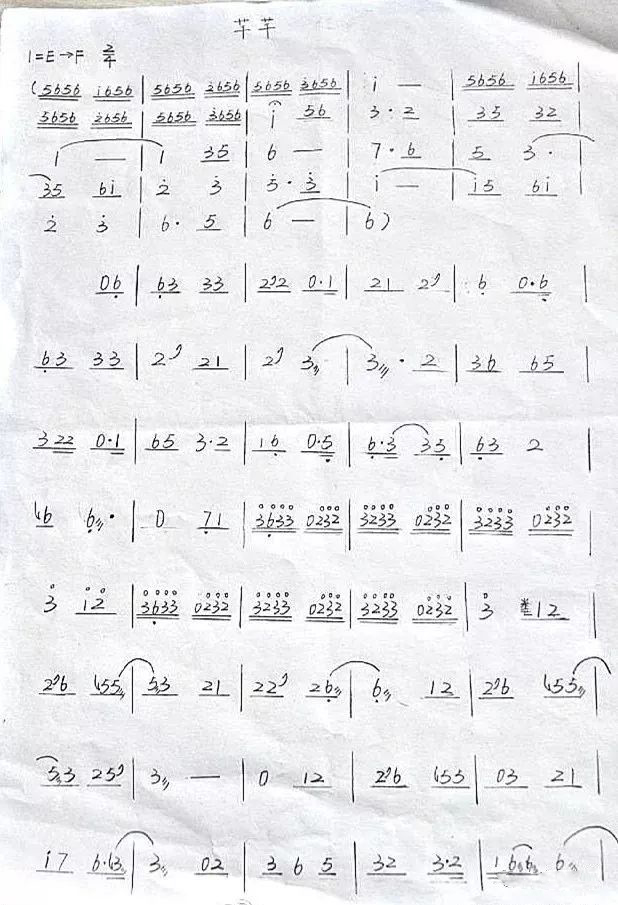 芊芊
1=E→F 2/4
(5656 i656 | 5656 2656 | 5656 3656 | i — | 5656 i656 |
3656 2656 | 5656 3656 | i 56 | 3·2 | 35 32 |
1 — | 1 35 | 6 — | 7·6 | 5 3· |
35 6i | 2 3 | 5·3 | i — | i5 6i |
2 3 | 6· 5 | 6 — | 6)
06 | 63 33 | 222 0·1 | 21 2 | 6 0·6 |
63 33 | 2 21 | 2 3 | 3·2 | 36 65 |
322 0·1 | 65 3·2 | 16 0·5 | 6·3 35 | 63 2 |
6 6· | 0 71 | 3633 0232 | 3233 0232 | 3233 0232 |
3 i2 | 3633 0232 | 3233 0232 | 3233 0232 | 3 12 |
226 55 | 53 21 | 22 26 | 6 12 | 26 55 |
53 25 | 3 — | 0 12 | 26 55 | 03 21 |
i7 6·3 | 3 02 | 3 6 5 | 32 3·2 | 166 6 |